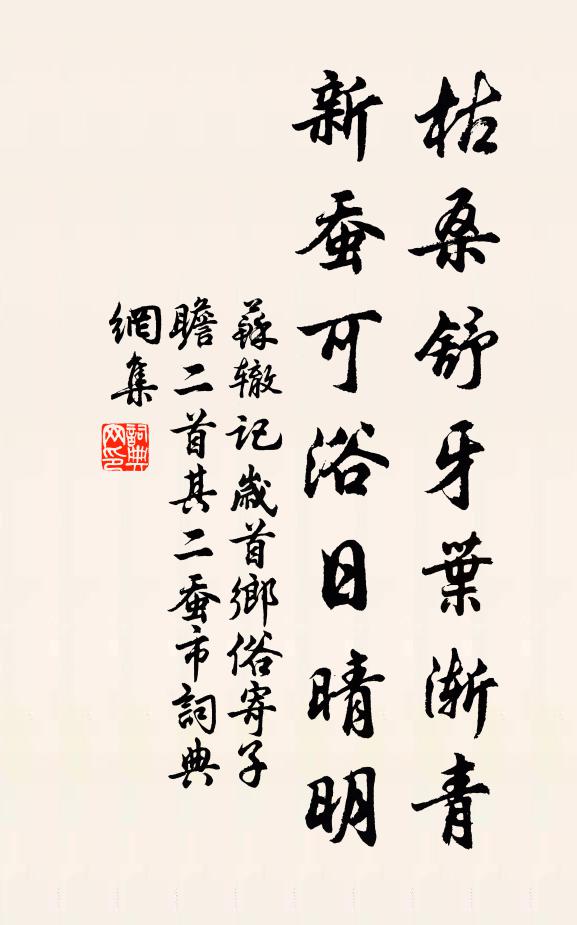 枯桑舒牙葉漸青
新蚕可浴日晴明
蘇辙記歲首鄉俗寄子
瞻二首其二蚕市詞典
網集
詞典
网印